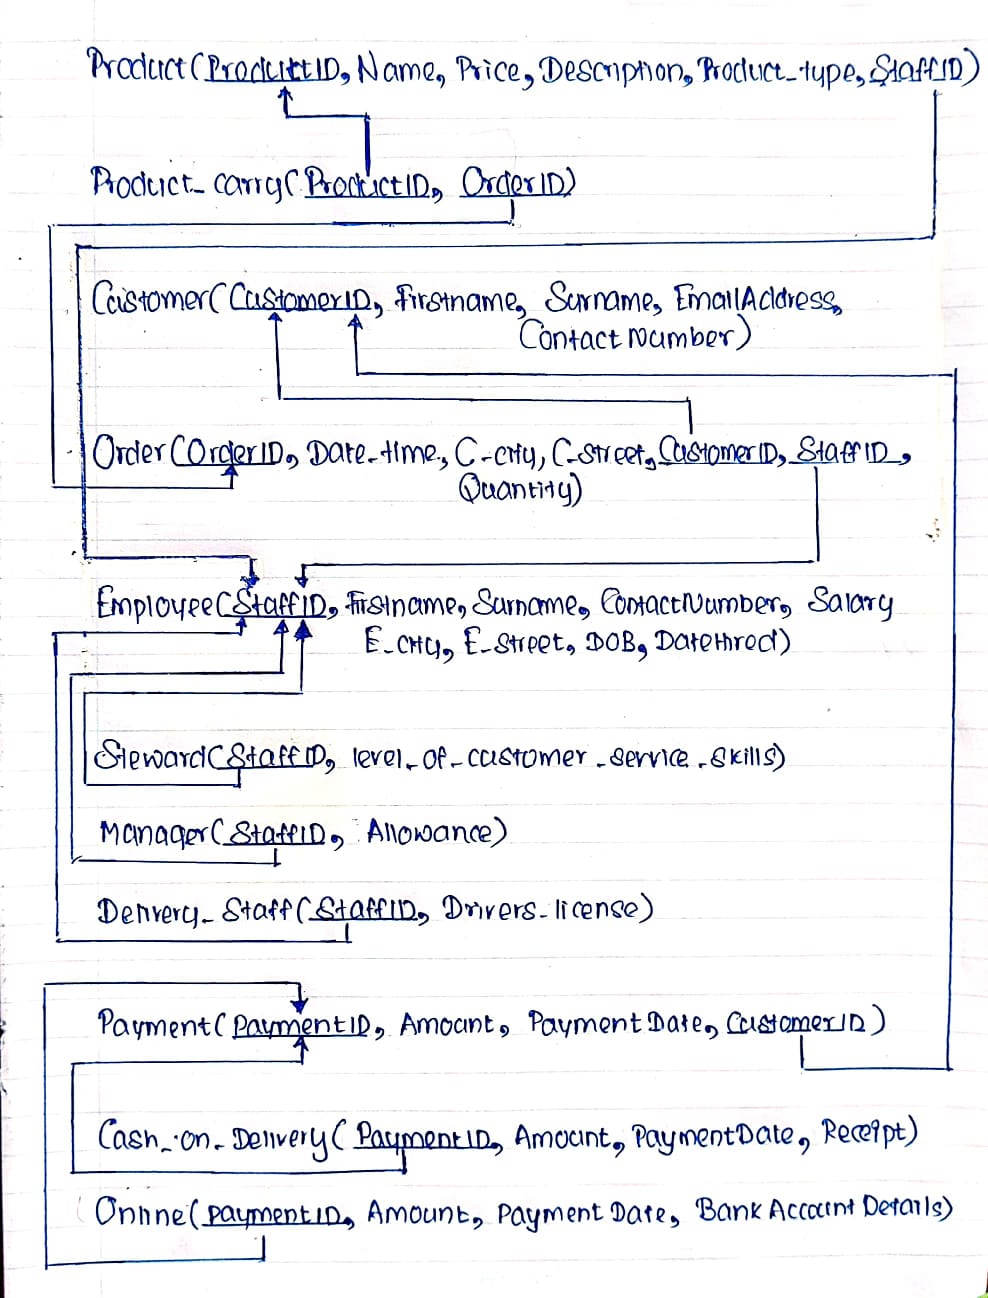 Product(ProductID, Name, Price, Description, Product_type, StaffID)
Product_carry(ProductID, OrderID)
Customer(CustomerID, Firstname, Surname, EmailAddress,
Contact Number)
Order(OrderID, Date_time, C-city, C-street, CustomerID, StaffID,
Quantity)
Employee(StaffID, Firstname, Surname, ContactNumber, Salary
E_city, E_Street, DOB, DateHired)
Steward(StaffID, level_of_customer_service_skills)
Manager(StaffID, Allowance)
Delivery_Staff(StaffID, Drivers_license)
Payment(PaymentID, Amount, Payment Date, CustomerID)
Cash_on_Delivery(PaymentID, Amount, PaymentDate, Receipt)
Online(paymentID, Amount, Payment Date, Bank Account Details)